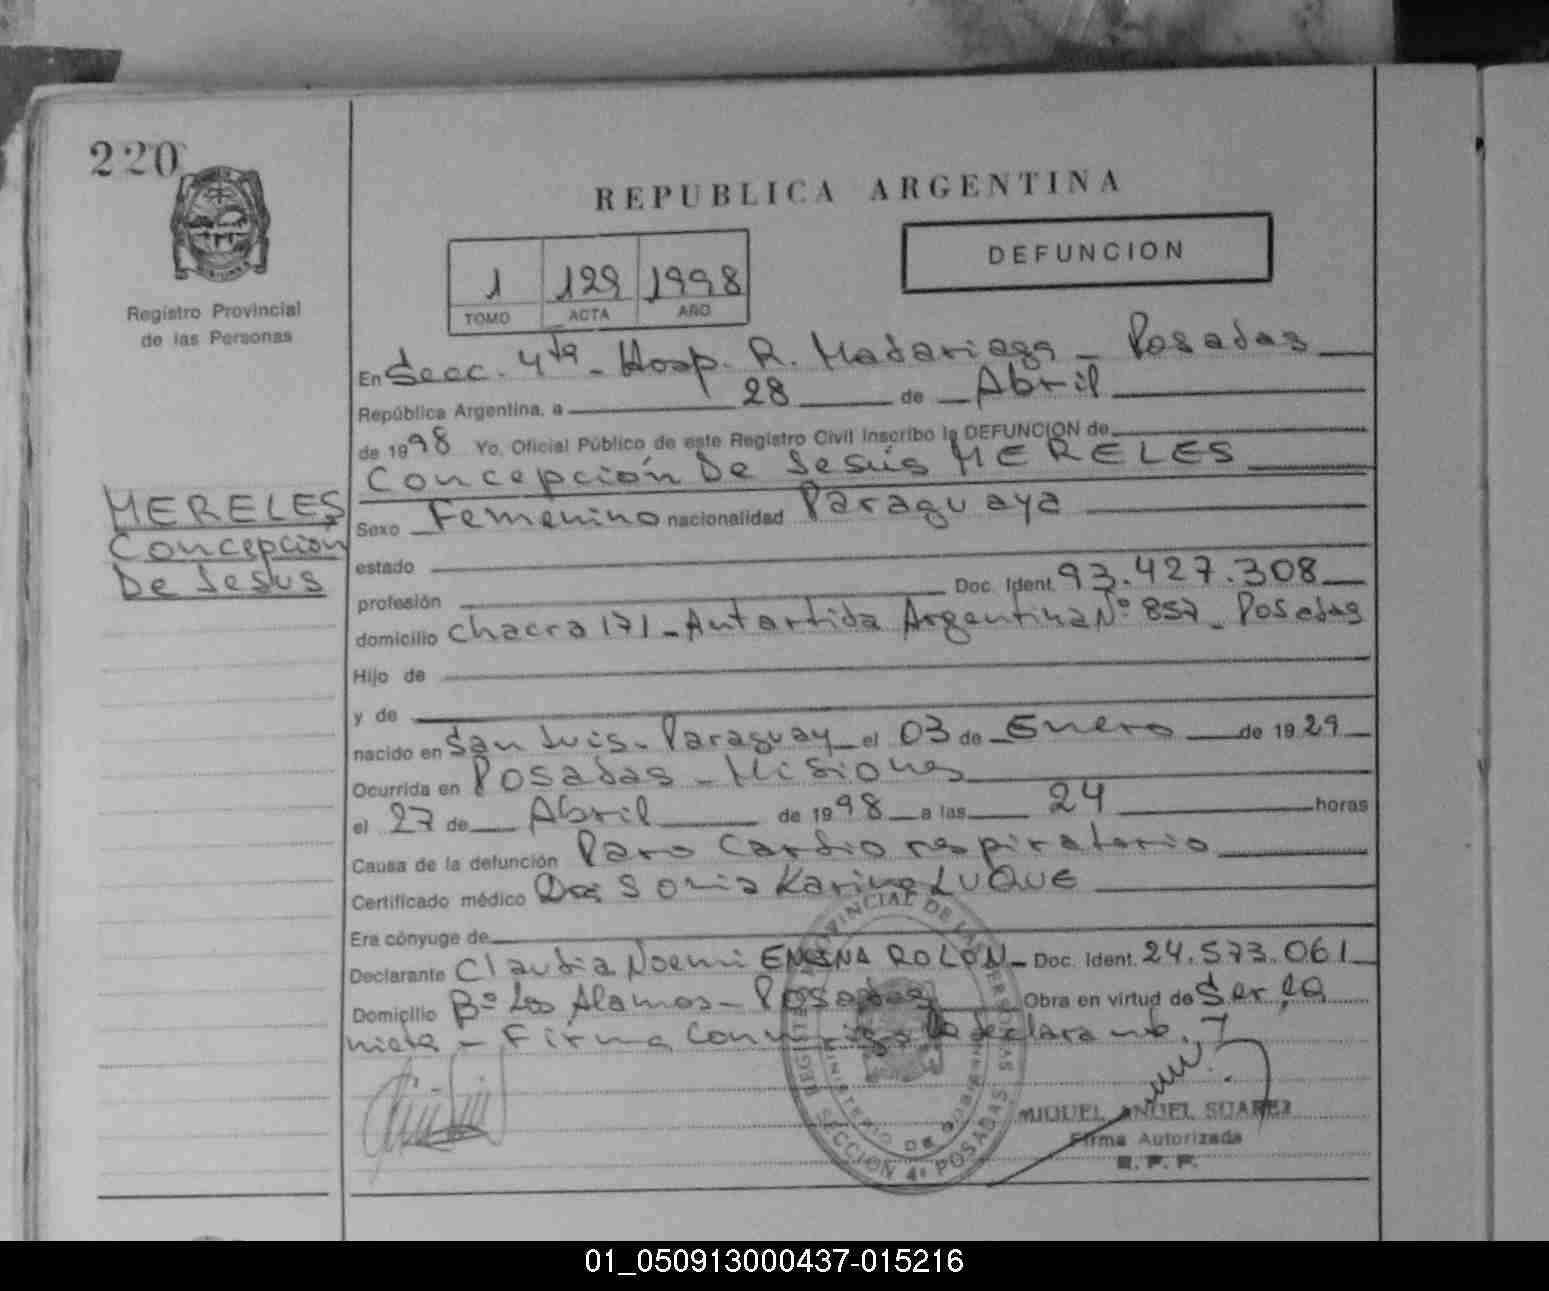 220
Registro Provincial
de las Personas
REPUBLICA ARGENTINA
DEFUNCION
1 129 1998
TOMO ACTA AÑO
En Secc. 4ta - Hosp. R. Madariaga - Posadas
República Argentina, a 28 de Abril
de 1998 Yo, Oficial Público de este Registro Civil inscribo la DEFUNCION de
Concepción De Jesús MERELES
MERELES
Concepcion
De Jesus
Sexo Femenino nacionalidad Paraguaya
estado
profesión Doc. Ident. 93.427.308
domicilio Chacra 171 - Antartida Argentina Nº 857 - Posadas
Hijo de
y de
nacido en San Luis - Paraguay el 03 de Enero de 1929
Ocurrida en Posadas - Misiones
el 27 de Abril de 1998 a las 24 horas
Causa de la defunción Paro Cardio respiratorio
Certificado médico Dra Sonia Karina LUQUE
Era cónyuge de
Declarante Claudia Noemi ROLON - Doc. Ident. 24.573.061
Domicilio Bº Los Alamos - Posadas Obra en virtud de Ser la
nieta - Firma Conmigo la declarante.
REGISTRO PROVINCIAL DE LAS PERSONAS
MINISTERIO DE GOBIERNO
SECCION 4ª POSADAS
MIGUEL ANGEL SUAREZ
Firma Autorizada
R. P. P.
01_050913000437-015216